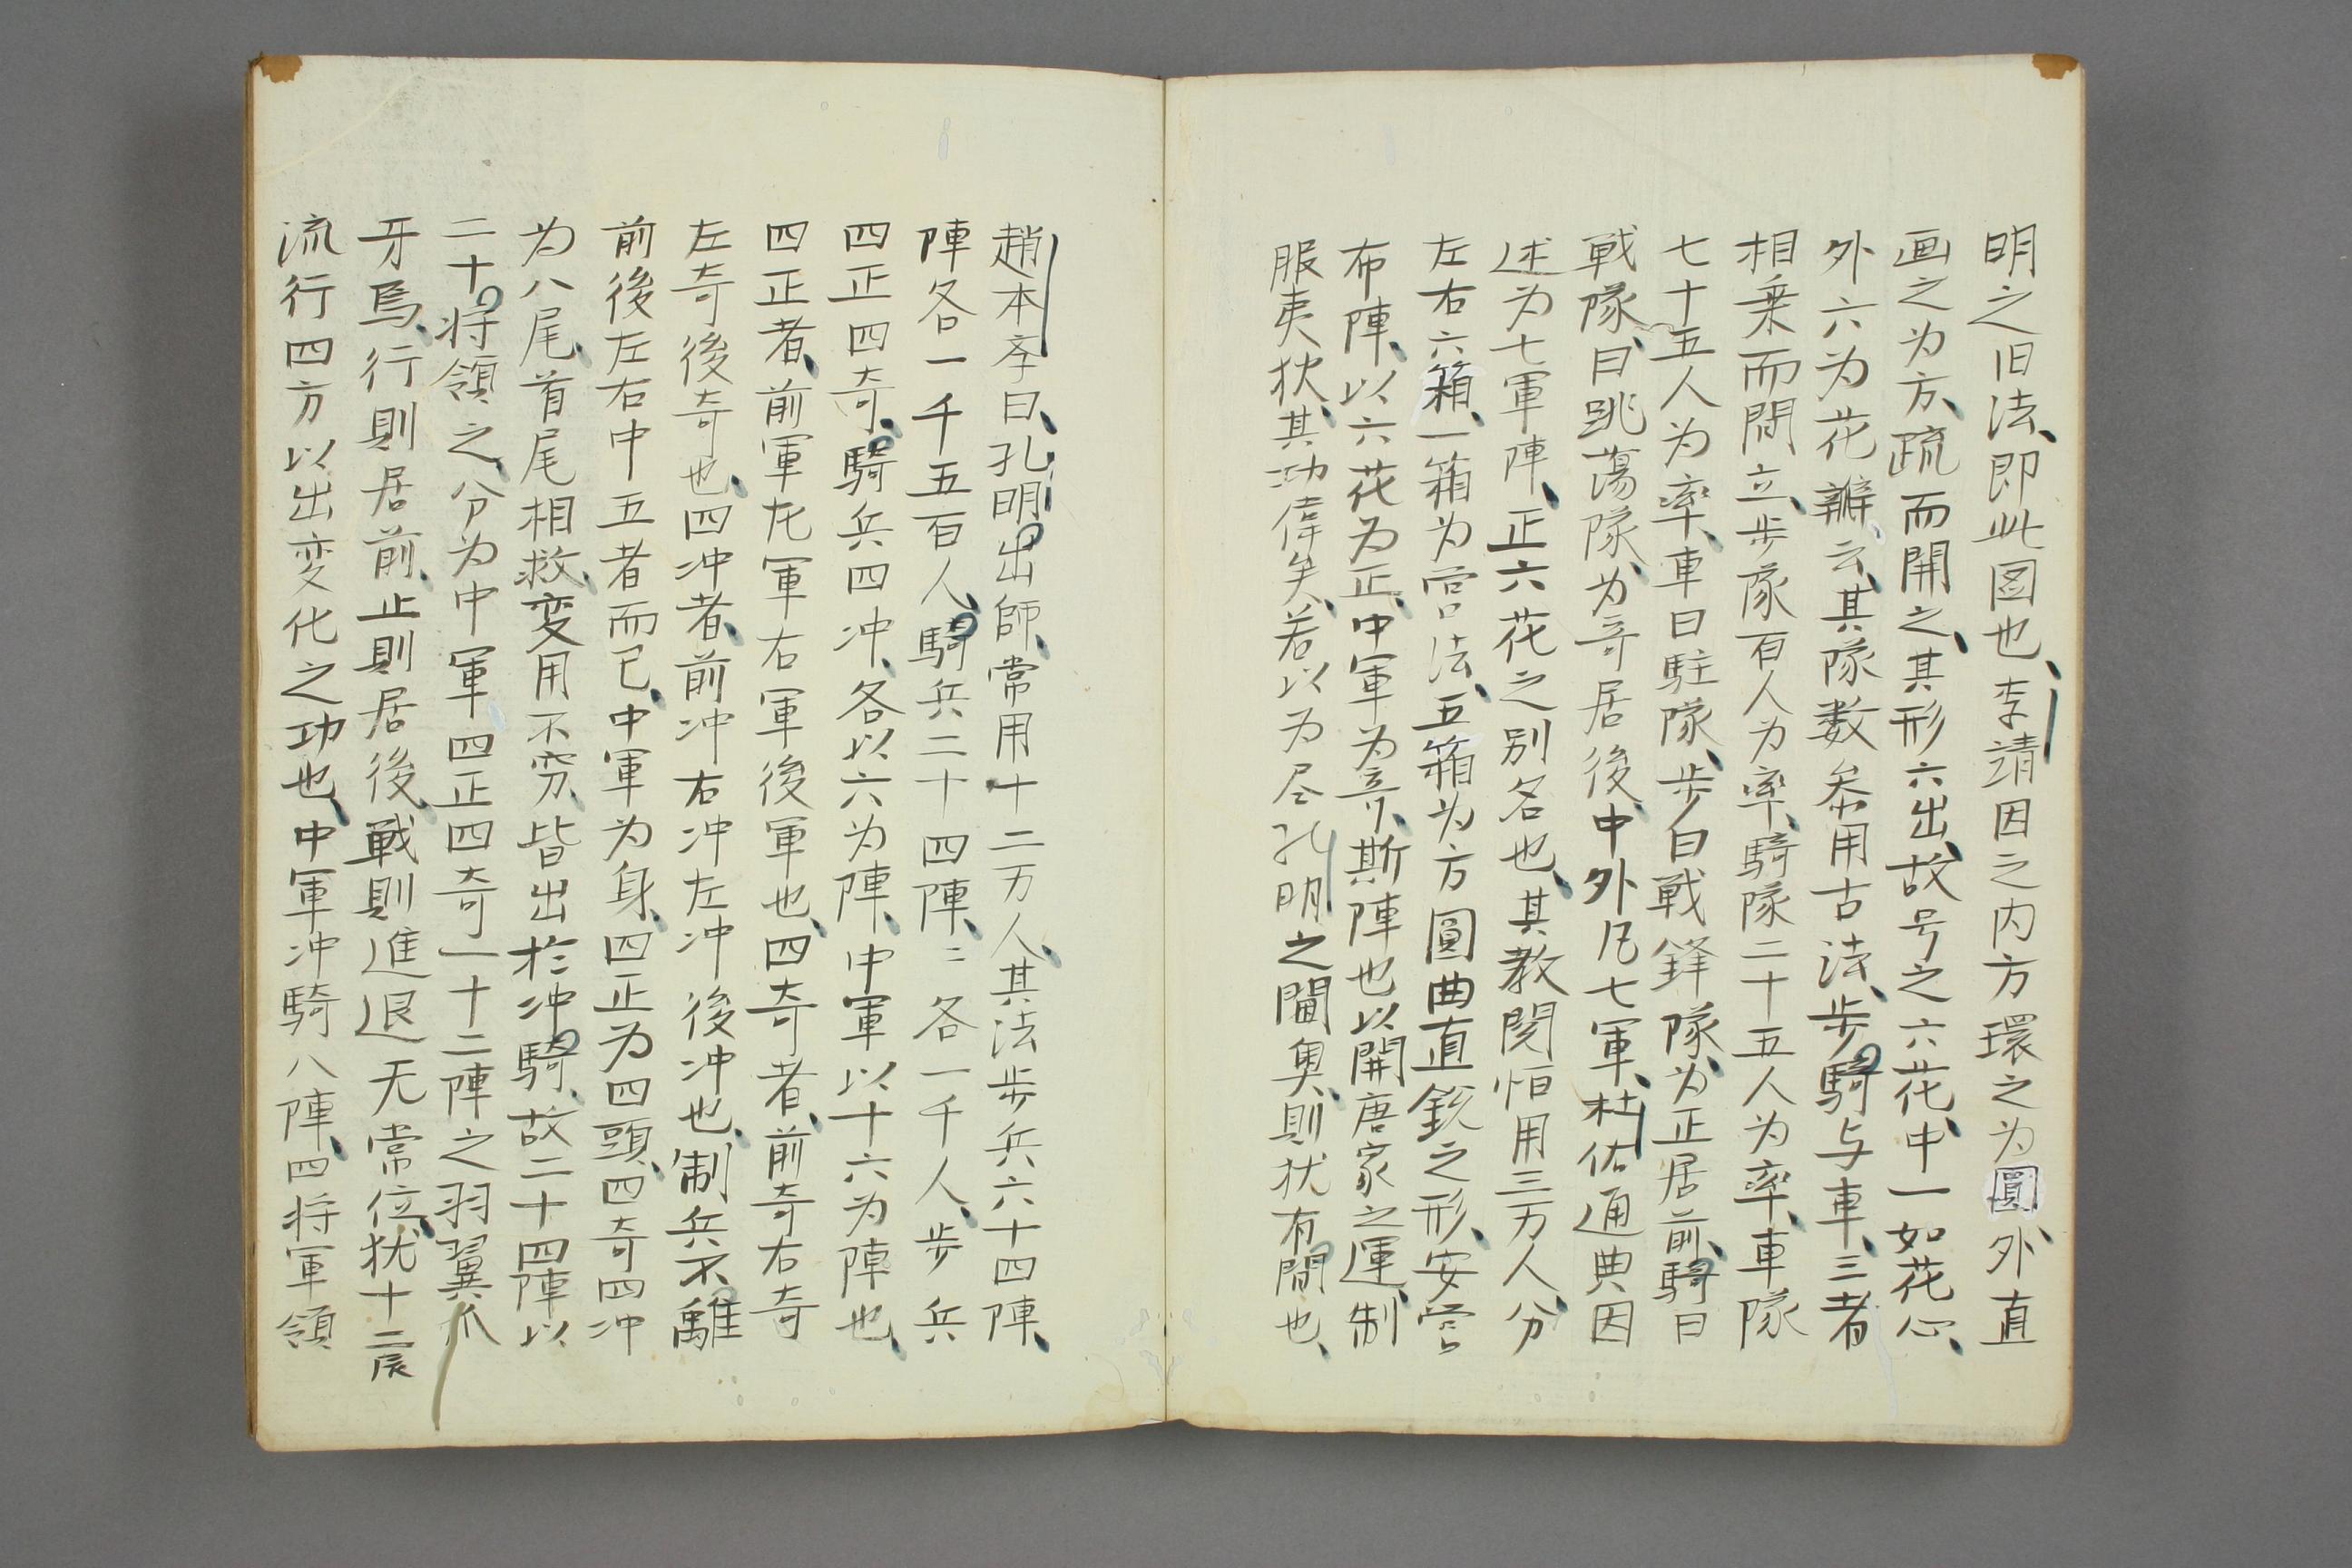 明之旧法、即此图也、李靖因之内方環之为圓外、直
画之为方、疏而開之、其形六出、故号之六花、中一如花心、
外六为花瓣、云其隊数参用古法、步騎与車、三者
相乗而閗立、步隊百人为率、騎隊二十五人为率、車隊
七十五人为率、車曰駐隊、步曰戦鋒隊、为正居前、騎曰
戦隊、曰跳蕩隊、为奇居後、中外凡七軍、杜佑通典因
述为七軍陣、正六花之别名也、其教閲恒用三万人、分
左右六箱、一箱为宫法、五箱为方圓曲直銳之形、安营
布陣、以六花为正、中軍为奇、斯陣也以開唐家之運、制
服夷狄、其功偉矣、若以为尽孔明之閫奧、則犹有閒也、
趙本孝曰、孔明出師、常用十二万人、其法步兵六十四陣、
陣各一千五百人、騎兵二十四陣、〻各一千人、步兵
四正四奇、騎兵四冲、各以六为陣、中軍以十六为陣也、
四正者、前軍左軍右軍後軍也、四奇者、前奇右奇
左奇後奇也、四冲者、前冲右冲左冲後冲也、制兵不離
前後左右中五者而已、中軍为身、四正为四頭、四奇四冲
为八尾、首尾相救、変用不穷、皆出於冲騎、故二十四陣以
二十将領之、分为中軍四正四奇一十二陣之羽翼爪
牙焉、行則居前、止則居後、戦則進退无常位、犹十二辰
流行四方以出変化之功也、中軍冲騎八陣、四将軍領